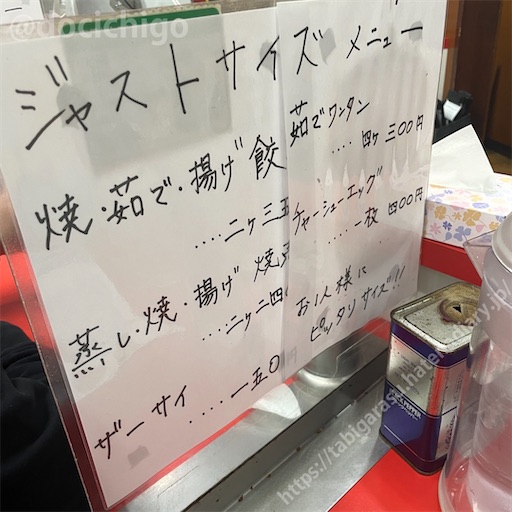 @docichigo
ジャストサイズ メニュー
焼・茹で・揚げ 餃
....二ヶ 三五
蒸し・焼・揚げ 焼
....二ヶ 二四
ザーサイ
....一五〇
茹でワンタン
....四ヶ 三〇〇円
チャーシューエッグ
....一枚 四〇〇円
お1人様に
ピッタリサイズ!!
https://tabigarasu.hatenadiary.jp/